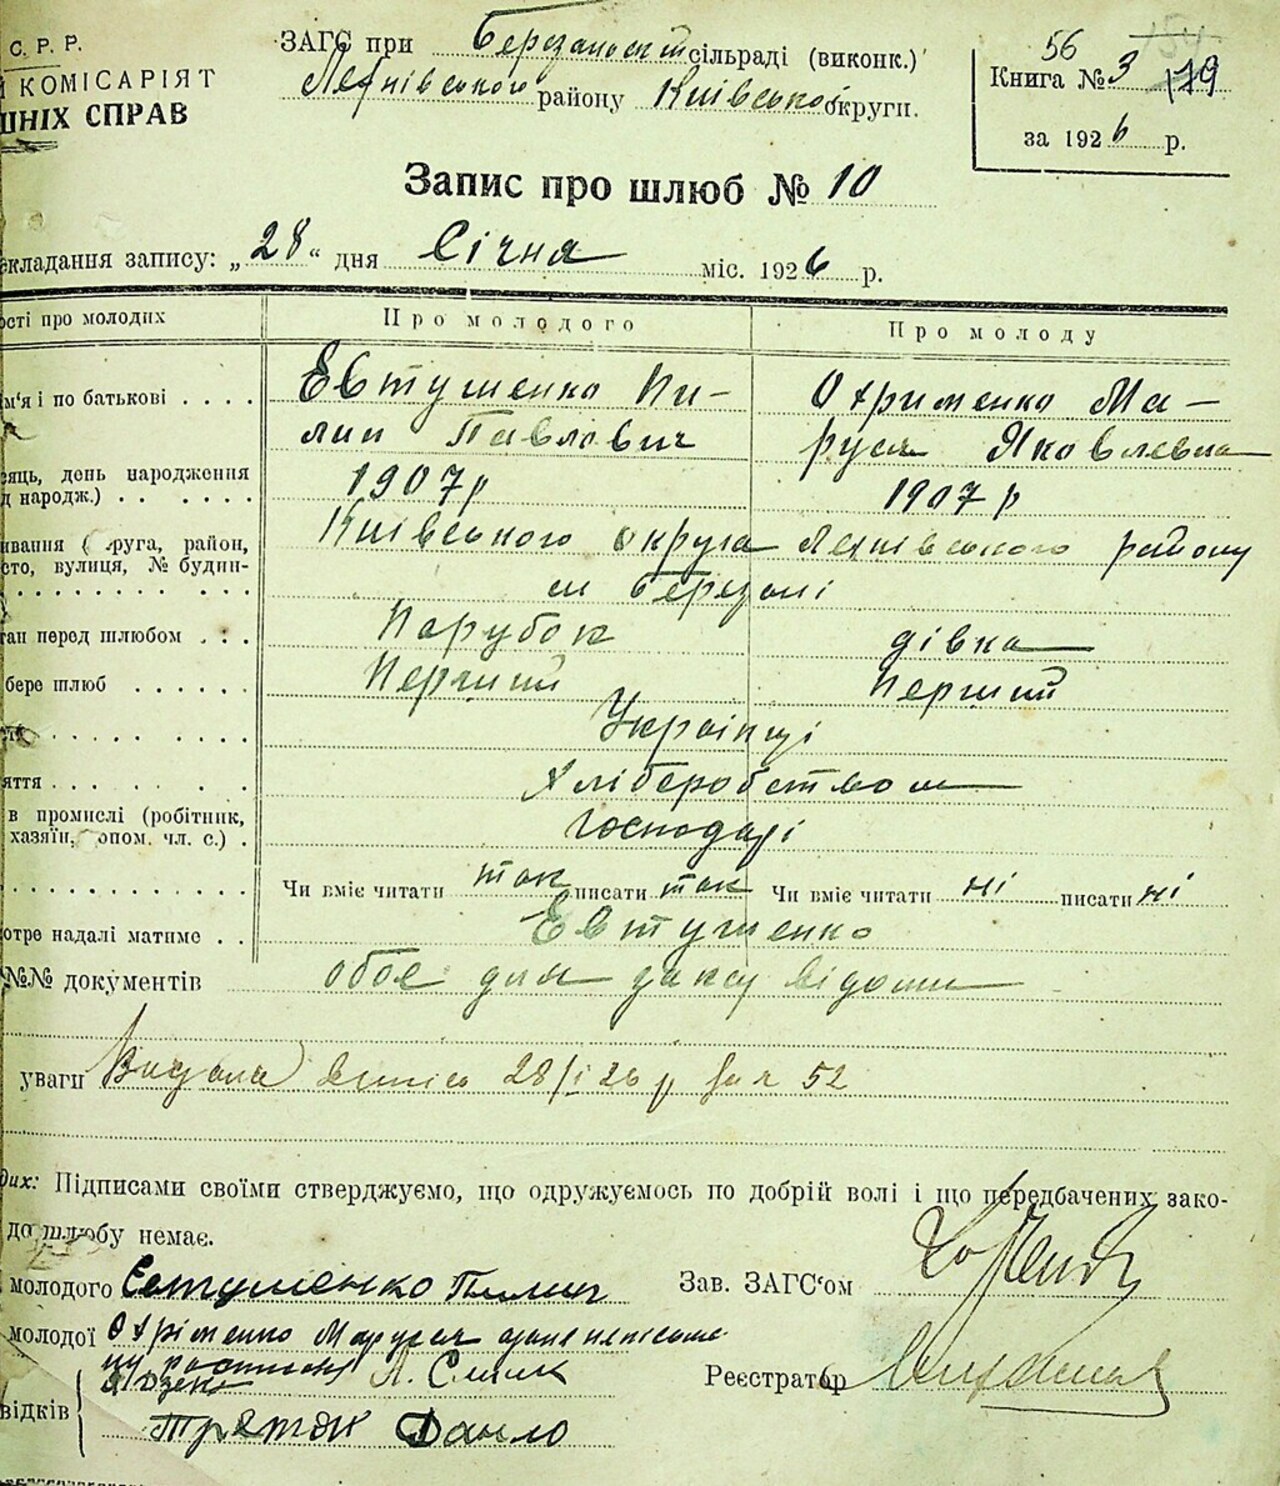 С. Р. Р.
КОМІСАРІЯТ
ШНІХ СПРАВ
ЗАГС при сільраді (виконк.)
району Київської округи.
56
Книга № 3 179
за 1926 р.
Запис про шлюб № 10
складання запису: „28“ дня Січня міс. 1926 р.
ості про молодих Про молодого Про молоду
м'я і по батькові . . . . Евтушенко Пи- Охрименко Ма-
лип Павлович руся Яковлевна
сяць, день народження
д народж.) . . . . . . 1907 р 1907 р
ивання ( руга, район, Київського округа району
сто, вулиця, № будин-
с Березані
тан перед шлюбом . . . Парубок дівка
бере шлюб . . . . . . Перший Перший
Українці
яття . . . . . . Хліберобством
в промислі (робітник,
хазяїн, опом. чл. с.) . господарі
Чи вміє читати так писати так Чи вміє читати ні писати ні
отре надалі матиме . . Евтушенко
№№ документів обое для загсу відоми
уваги Видана 28/I 26 р за № 52
дих: Підписами своїми стверджуємо, що одружуємось по добрій волі і що передбачених зако-
до шлюбу немає.
молодого Євтушенко Пилип Зав. ЗАГС'ом
молодої Охріменко Маруся
А. Реєстратор
відків
Данило